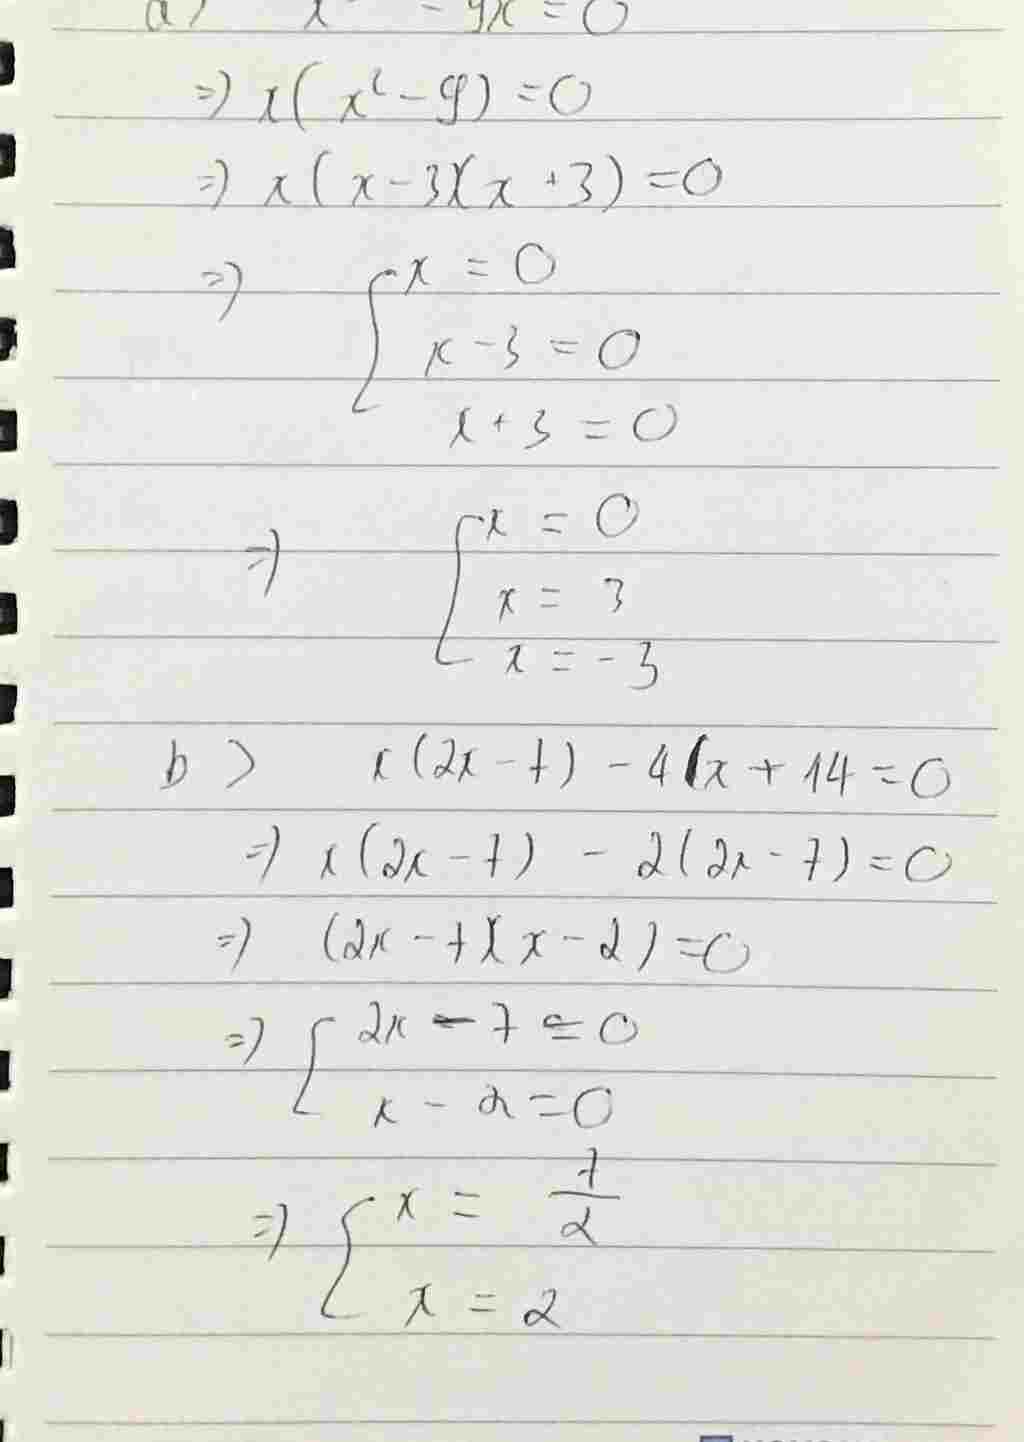 a) x³ - 9x = 0
=) x(x² - 9) = 0
=) x(x - 3)(x + 3) = 0
=) [ x = 0
x - 3 = 0
x + 3 = 0
=) [ x = 0
x = 3
x = -3
b) x(2x - 7) - 4x + 14 = 0
=) x(2x - 7) - 2(2x - 7) = 0
=) (2x - 7)(x - 2) = 0
=) [ 2x - 7 = 0
x - 2 = 0
=) [ x = 7/2
x = 2